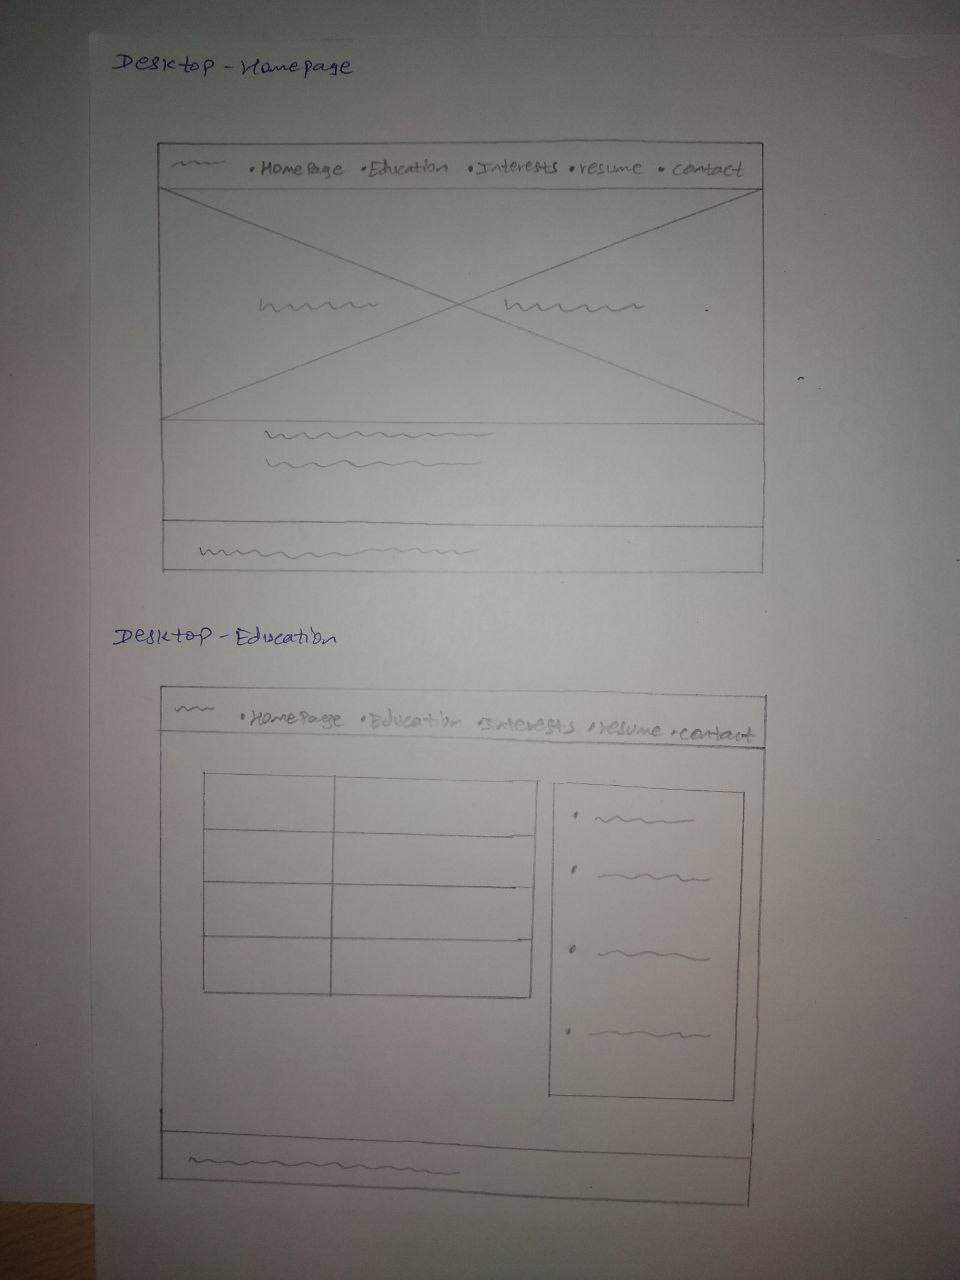 Desktop - Homepage
• Homepage • Education • Interests • resume • contact
Desktop - Education
• Homepage • Education • Interests • resume • contact